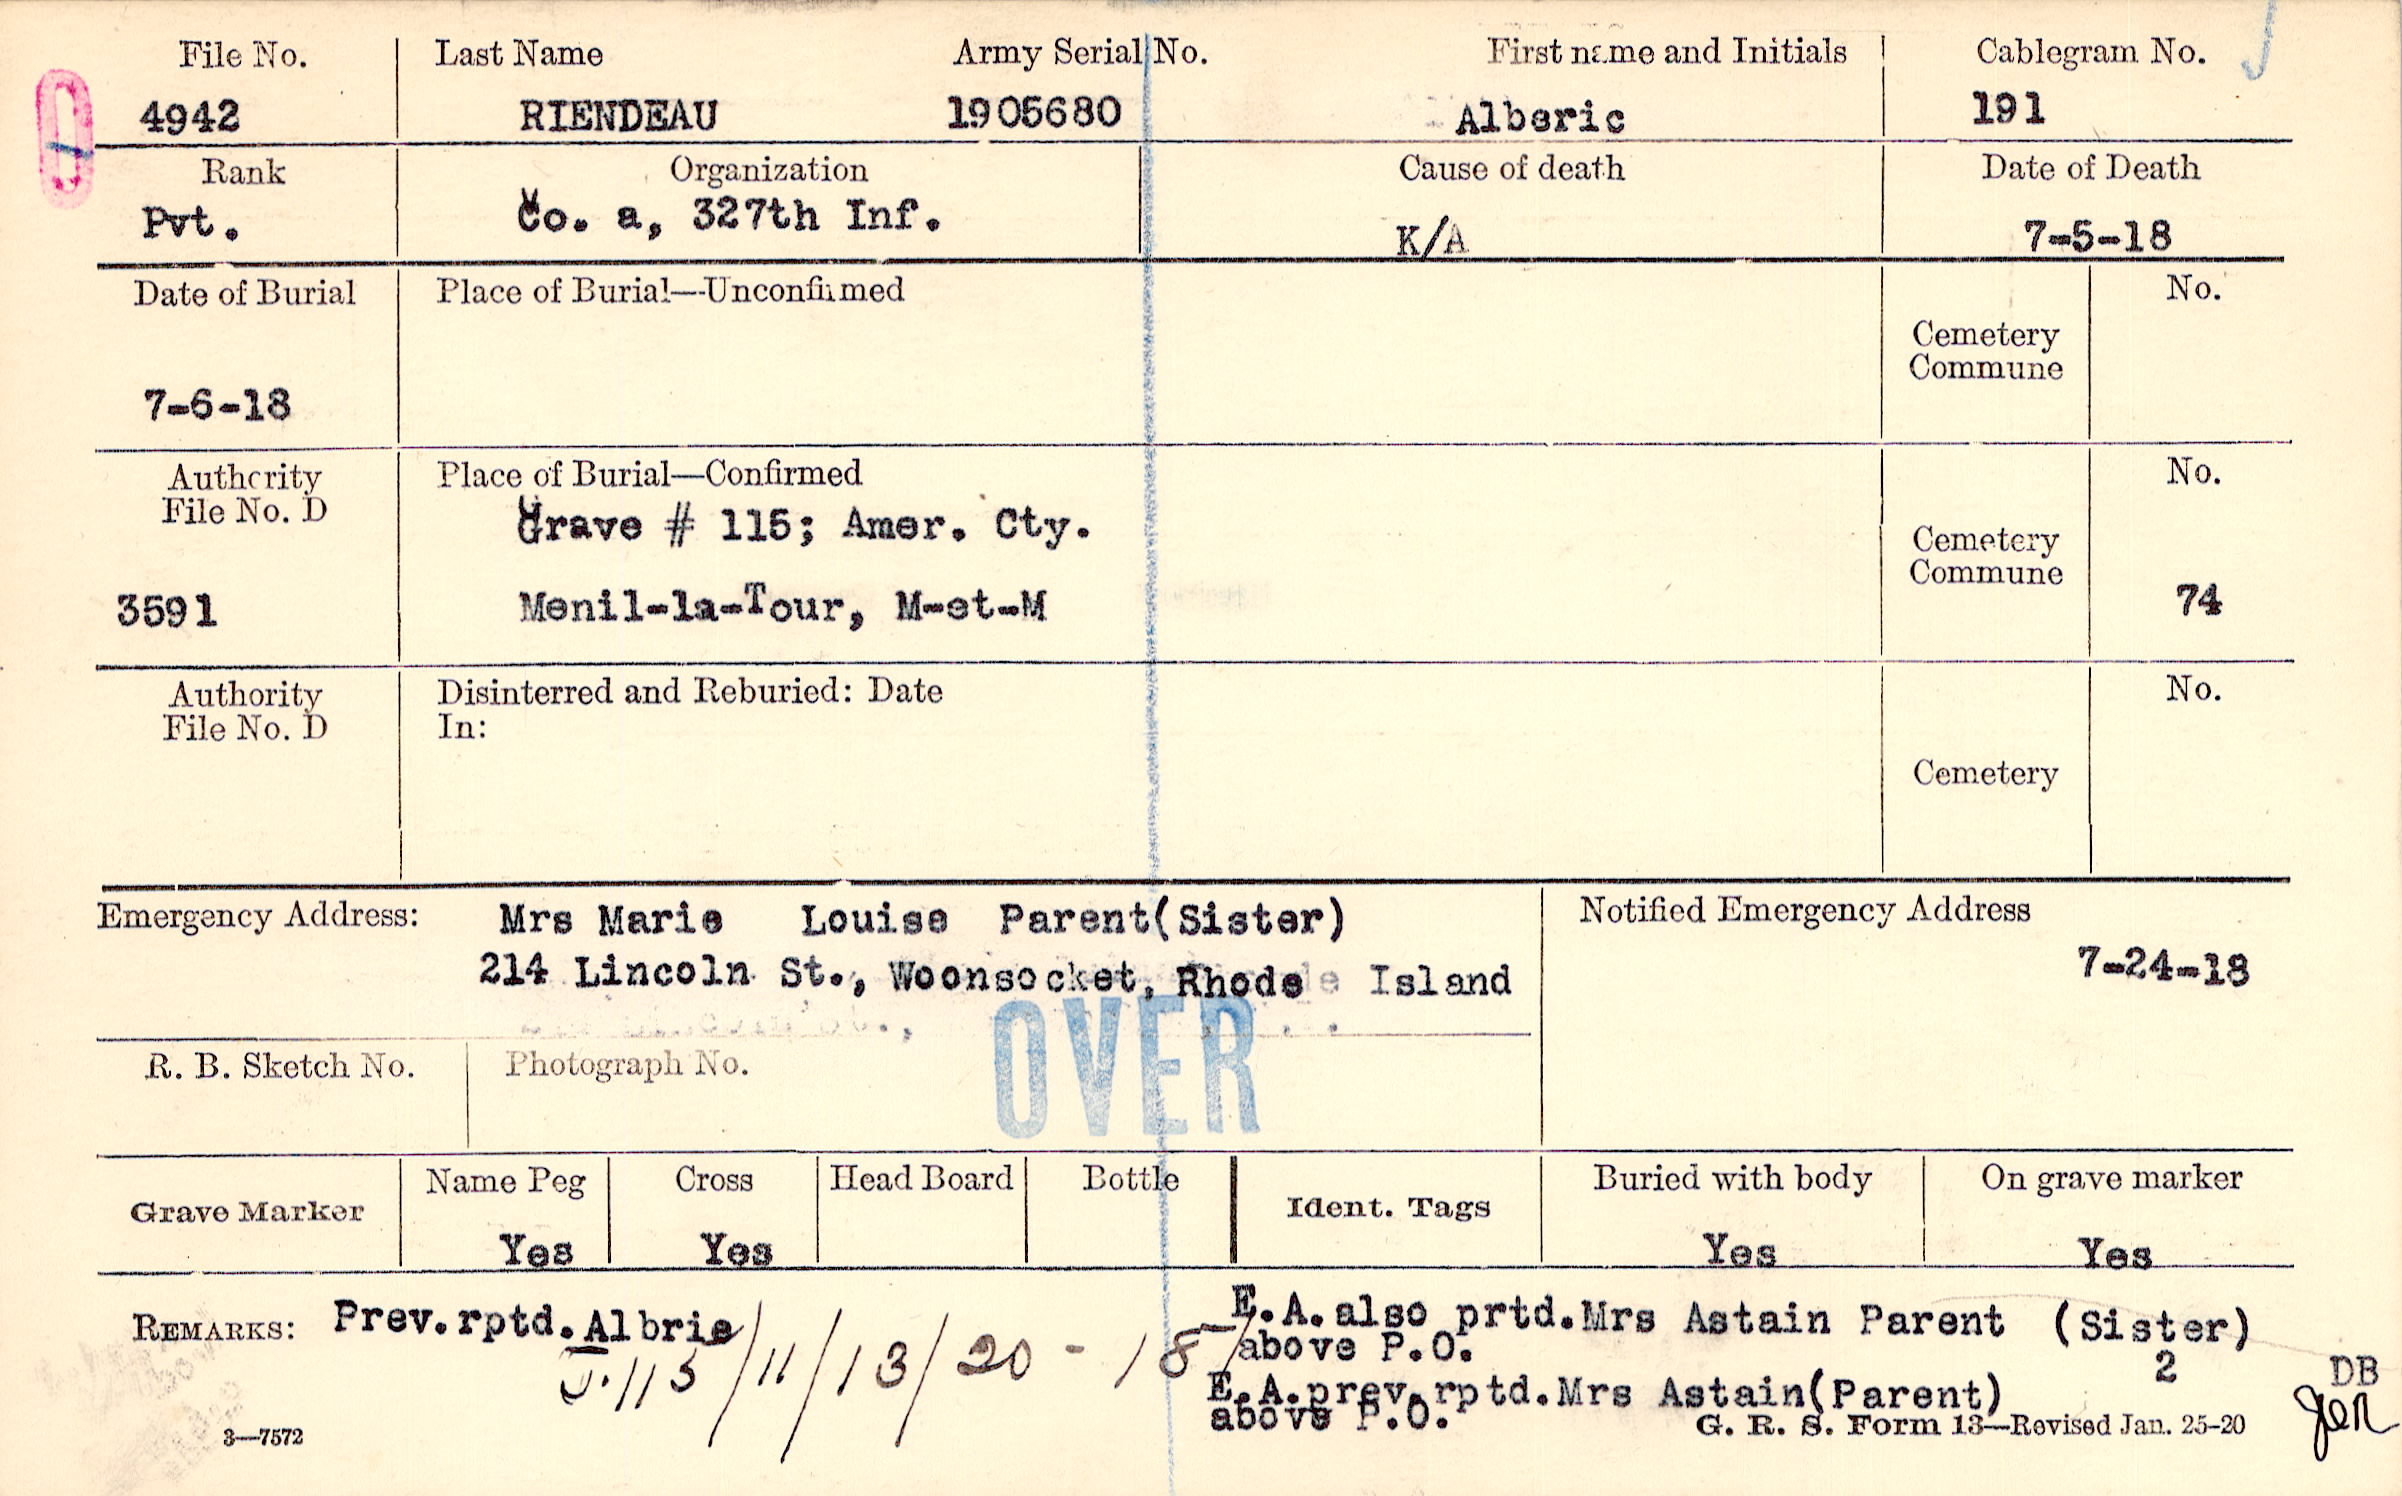 File No. Last Name Army Serial No. First name and Initials Cablegram No.
4942 RIENDEAU 1905680 Alberic 191
Rank Organization Cause of death Date of Death
Pvt. Co. a, 327th Inf. K/A 7-5-18
Date of Burial Place of Burial—Unconfirmed No.
Cemetery
Commune
7-6-18
Authority Place of Burial—Confirmed No.
File No. D
Grave # 115; Amer. Cty.
Cemetery
Commune
3591 Menil-la-Tour, M-et-M 74
Authority Disinterred and Reburied: Date No.
File No. D In:
Cemetery
Emergency Address: Mrs Marie Louise Parent(Sister) Notified Emergency Address
214 Lincoln St., Woonsocket, Rhode Island 7-24-18
OVER
R. B. Sketch No. Photograph No.
Grave Marker Name Peg Cross Head Board Bottle Ident. Tags Buried with body On grave marker
Yes Yes Yes Yes
REMARKS: Prev.rptd.Albrie E.A.also prtd.Mrs Astain Parent (Sister)
above P.O.
115/11/13/20-18 2
E.A.prev.rptd.Mrs Astain(Parent) DB
above P.O.
3—7572 G. R. S. Form 13—Revised Jan. 25-20